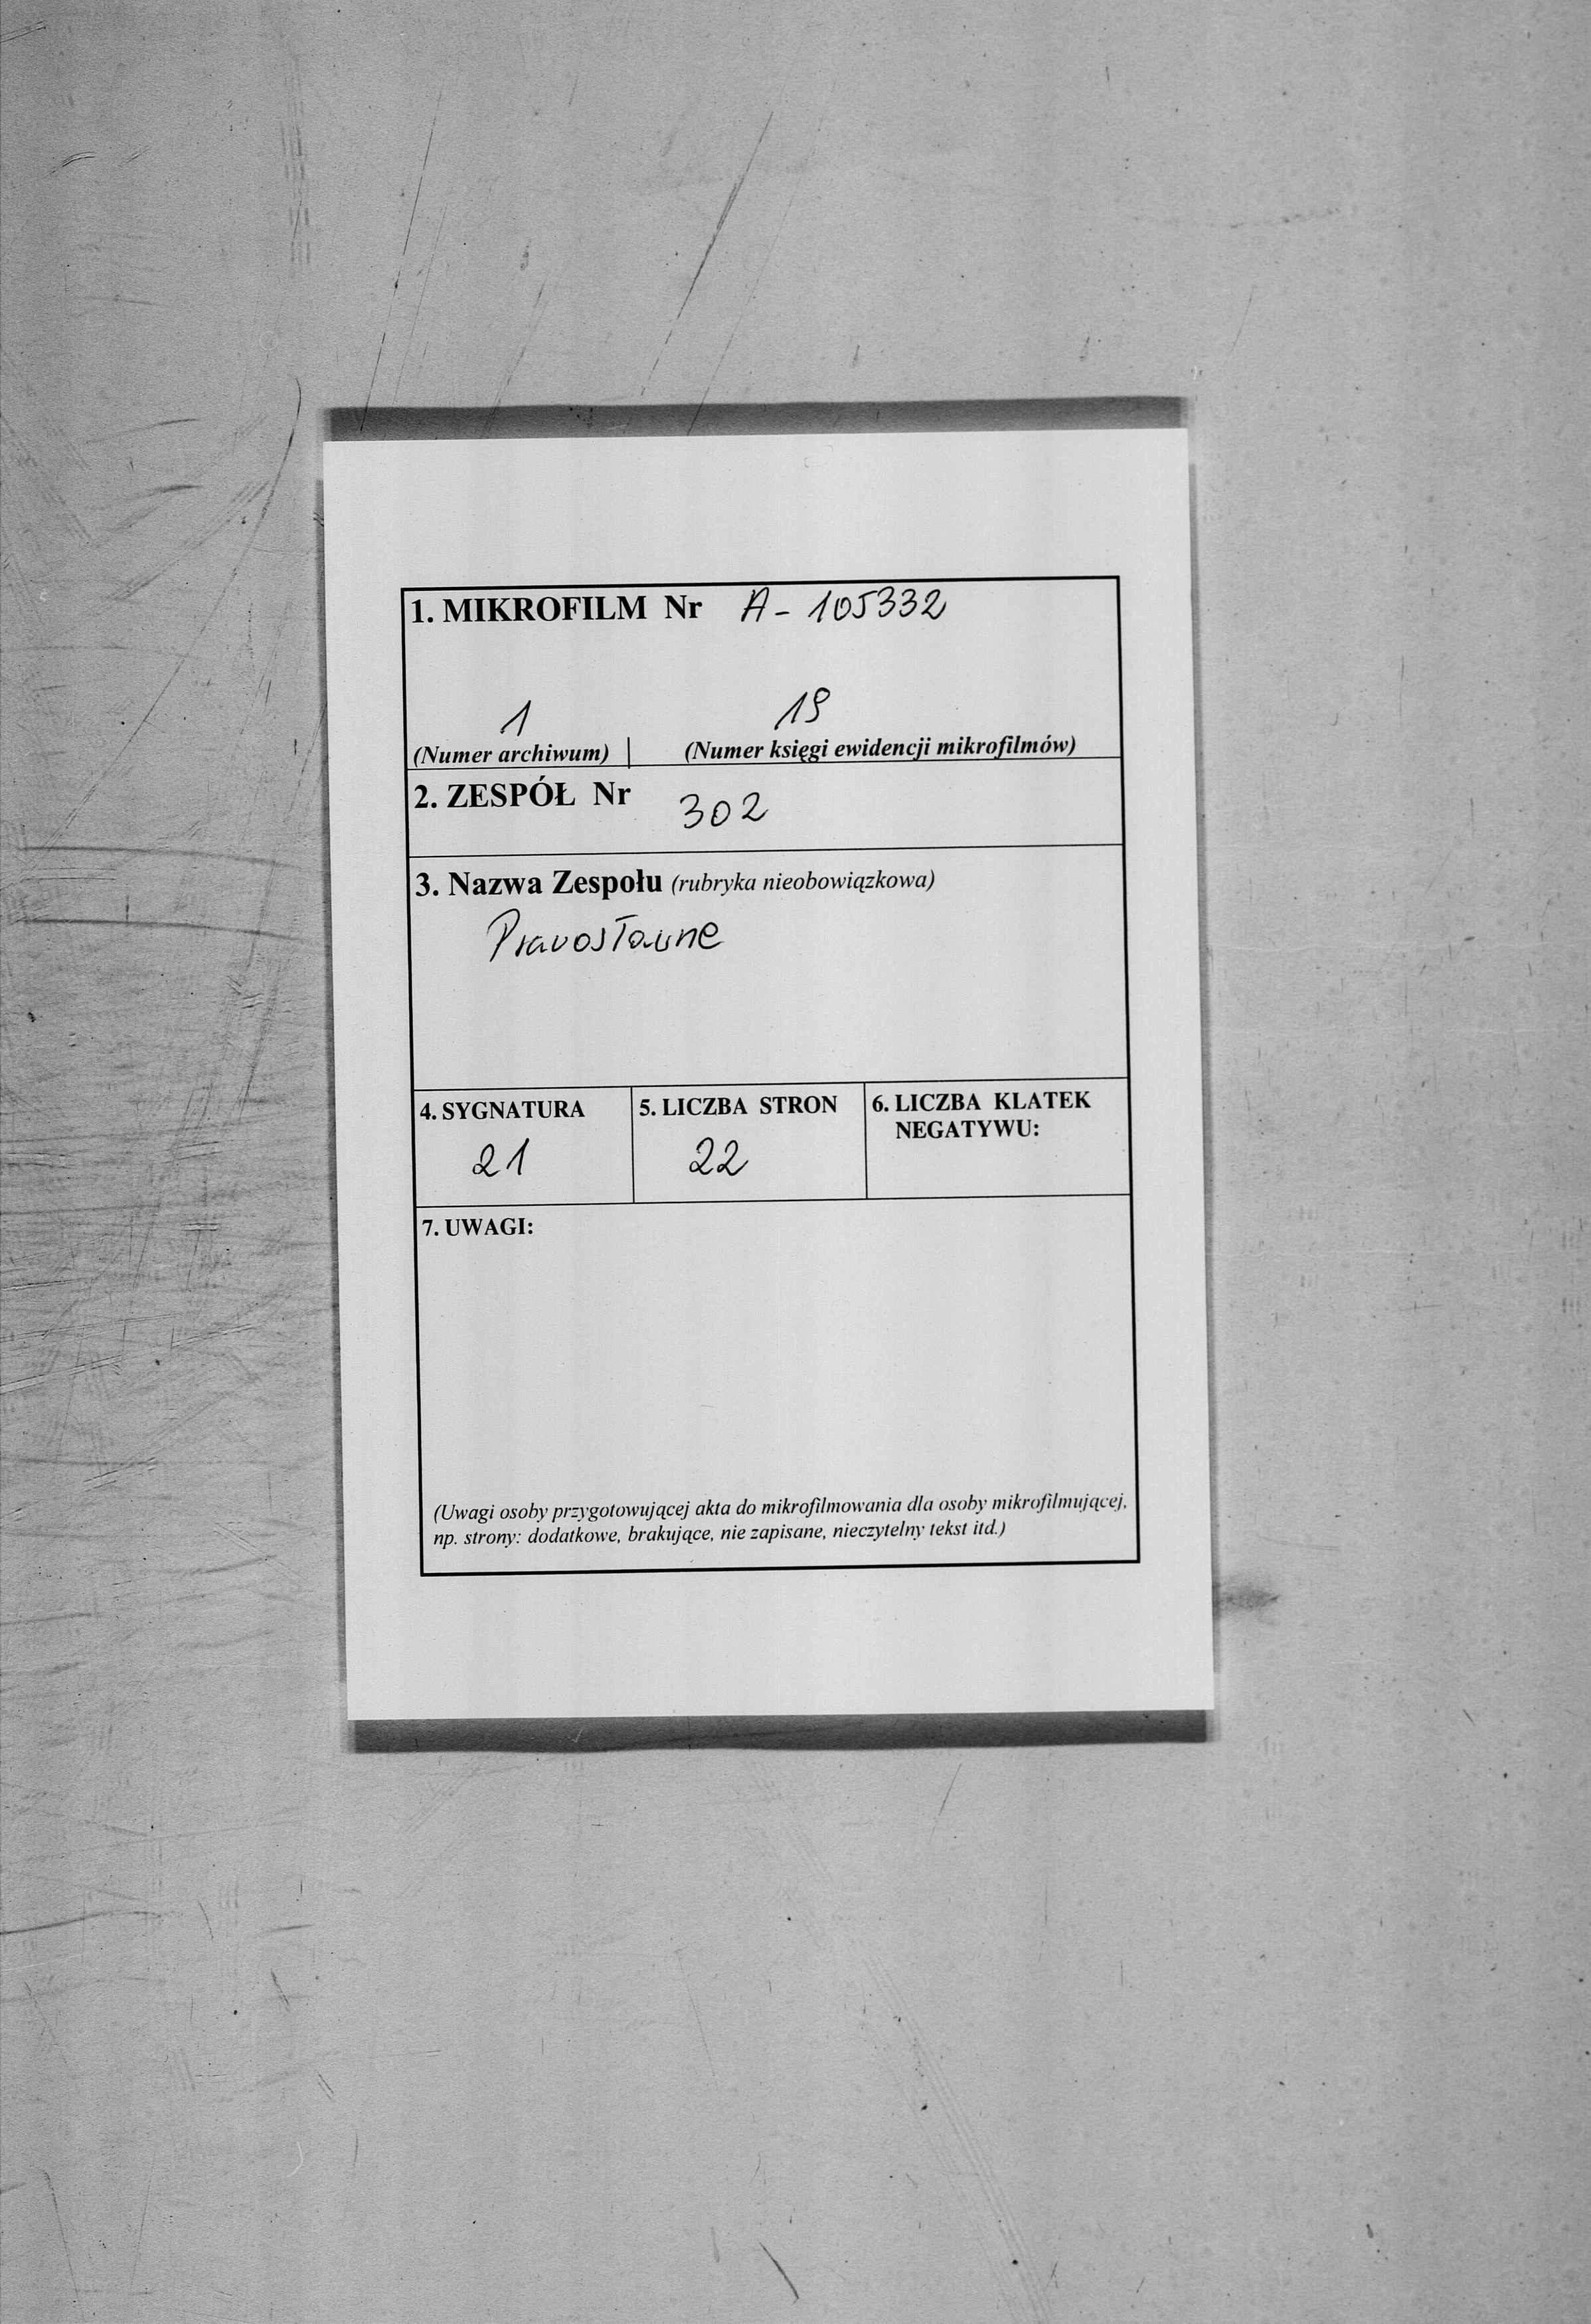 1. MIKROFILM Nr A - 105332
1 19
(Numer archiwum) | (Numer księgi ewidencji mikrofilmów)
2. ZESPÓŁ Nr 302
3. Nazwa Zespołu (rubryka nieobowiązkowa)
Prawosławne
4. SYGNATURA
21
5. LICZBA STRON
22
6. LICZBA KLATEK
NEGATYWU:
7. UWAGI:
(Uwagi osoby przygotowującej akta do mikrofilmowania dla osoby mikrofilmującej,
np. strony: dodatkowe, brakujące, nie zapisane, nieczytelny tekst itd.)